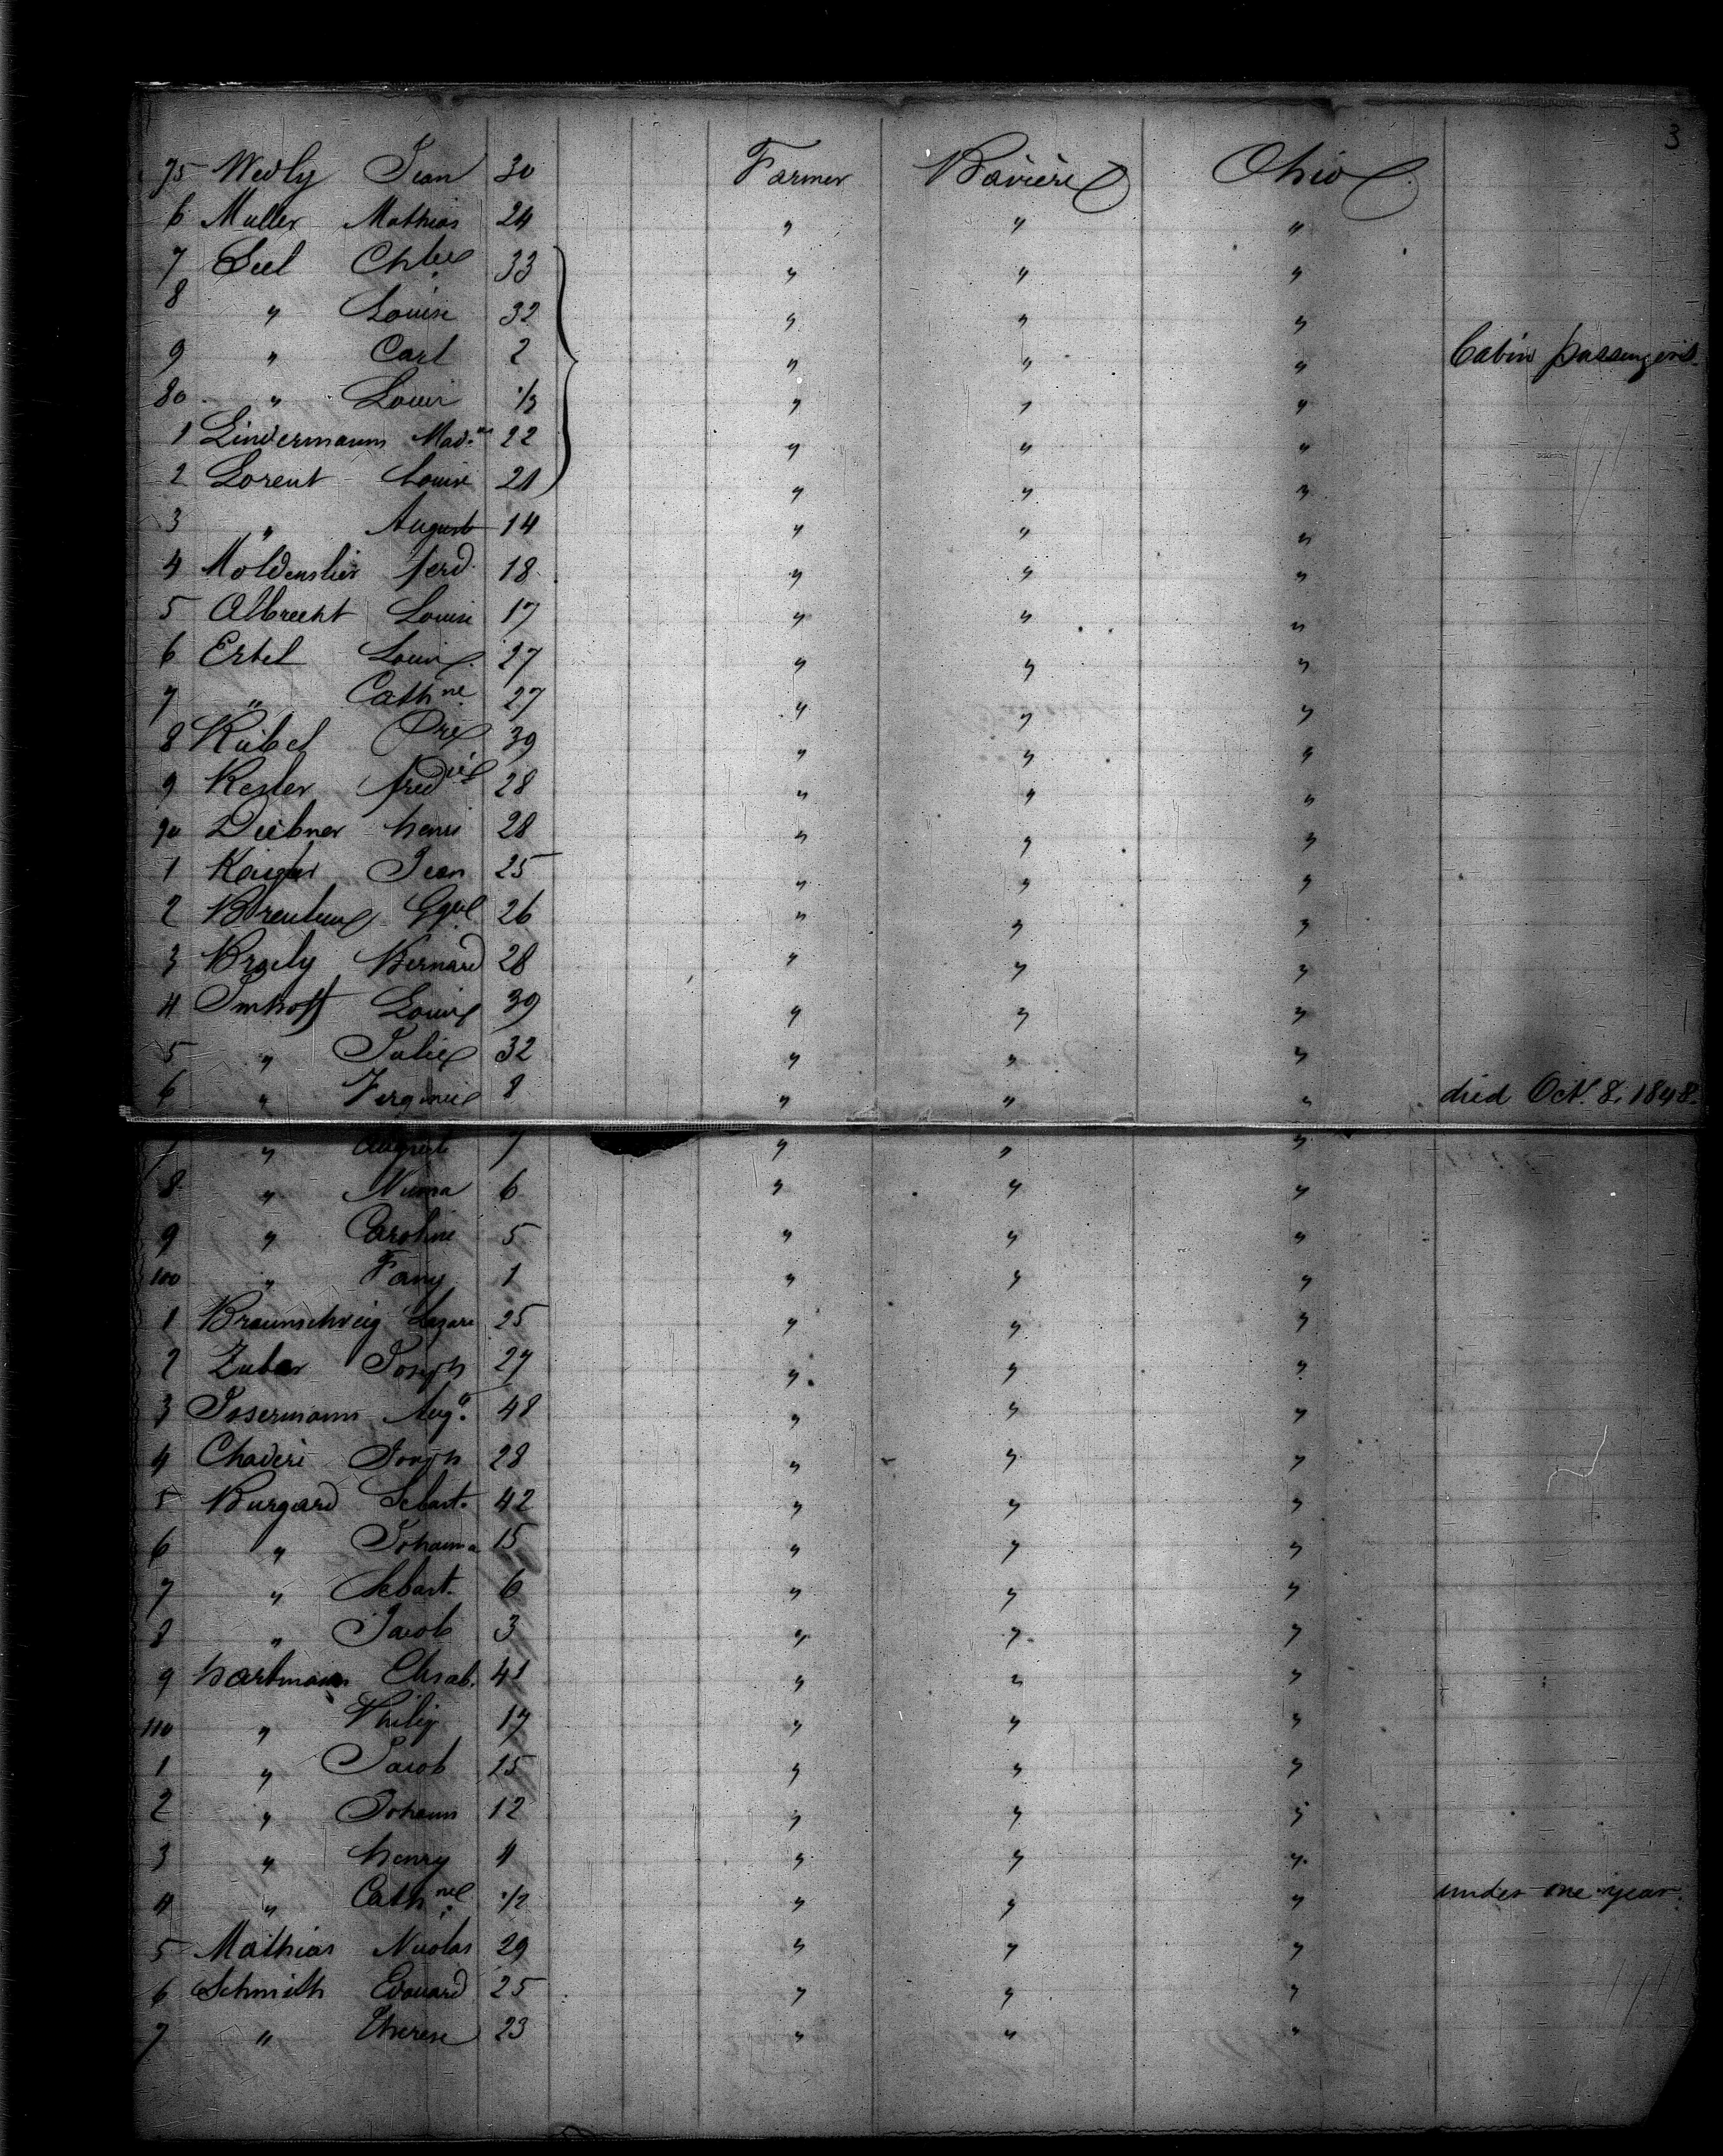 3
75 Wedly Jean 30 Farmer Bavière Ohio
6 Muller Mathias 24 " " "
7 Seel 33 " " "
8 " Louise 32 " " "
9 " Carl 2 " " " Cabin passengers
80 " Louis " " "
1 Lindermann Mad.ne 22 " " "
2 Lorent Louise 21 " " "
3 " August 14 " " "
4 ferd. 18 " " "
5 Albrecht Louise 17 " " "
6 Ertel Louis 27 " " "
7 " Cathne 27 " " "
8 Kübel 39 " " "
9 Kesler 28 " " "
90 Diebner henri 28 " " "
1 Jean 25 " " "
2 26 " " "
3 Bernard 28 " " "
4 Imhoff Louis 39 " " "
5 " Julie 32 " " "
6 " Verginie 8 " " " died Oct. 8. 1848.
7 " August 7 " " "
8 " Numa 6 " " "
9 " Caroline 5 " " "
100 " Fany 1 " " "
1 Braunschveig Lazare 25 " " "
2 Zuber Joseph 27 " " "
3 Josermann Aug.e 48 " " "
4 Chaderi Joseph 28 " " "
5 Burgard Sebast. 42 " " "
6 " Johanna 15 " " "
7 " Sebast. 6 " " "
8 " Jacob 3 " " "
9 hartmann Elisab. 41 " " "
110 " Philip 17 " " "
1 " Jacob 15 " " "
2 " Johann 12 " " "
3 " henry 4 " " "
4 " Cathne 1/2 " " " under one year.
5 Mathias Nicolas 29 " " "
6 Schmith Edouard 25 " " "
7 " Therese 23 " " "